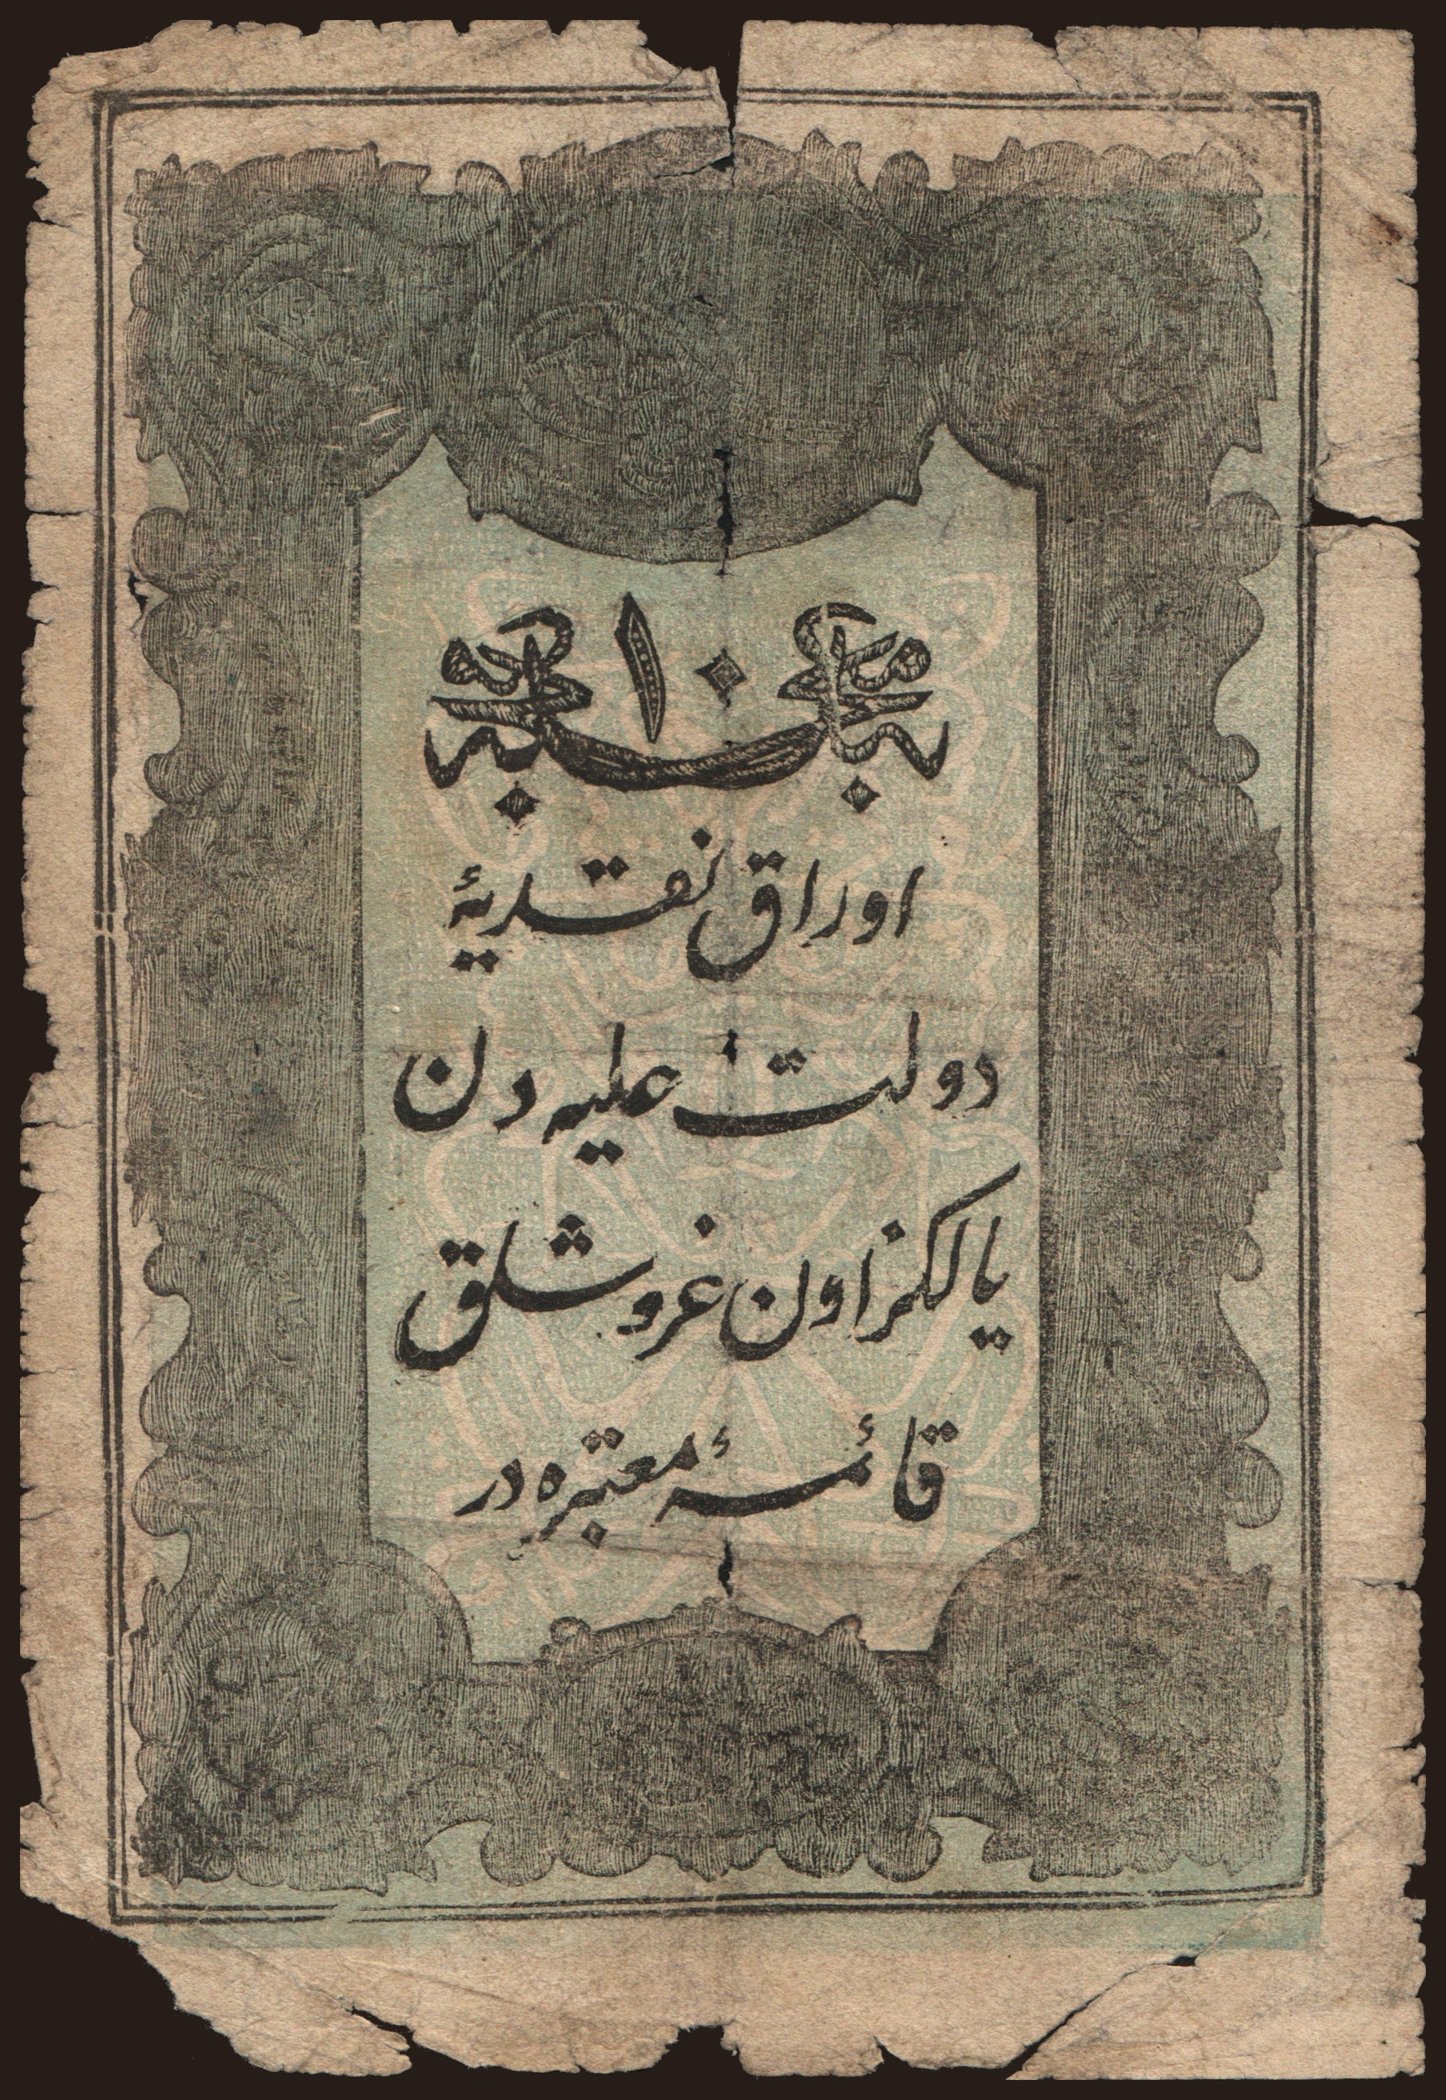 ١٠
اوراق نقديۀ
دولت عليه دن
يالكز اون غروشلق
قائمۀ معتبره در